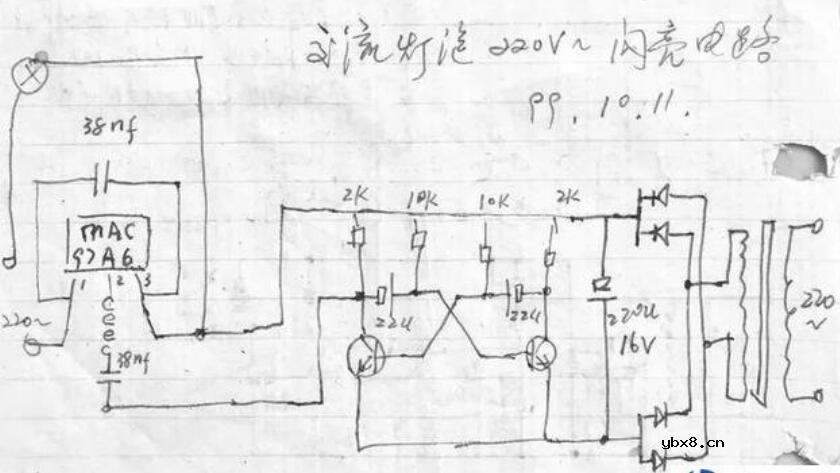 交流灯泡220V~闪亮电路
99.10.11.
38nf
2K 10K 10K 2K
MAC
97A6
1 2 3
22u 22u
220u
16V
220~
220
~
38nf
ybx8.cn